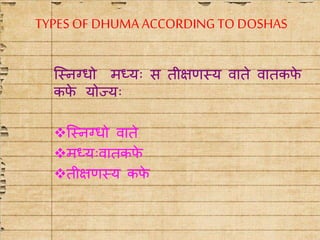 TYPES OF DHUMA ACCORDING TO DOSHAS
स्निग्धो मध्यः स तीक्षणस्य वाते वातकफे
कफे योज्यः
❖स्निग्धो वाते
❖मध्यःवातकफे
❖तीक्षणस्य कफे